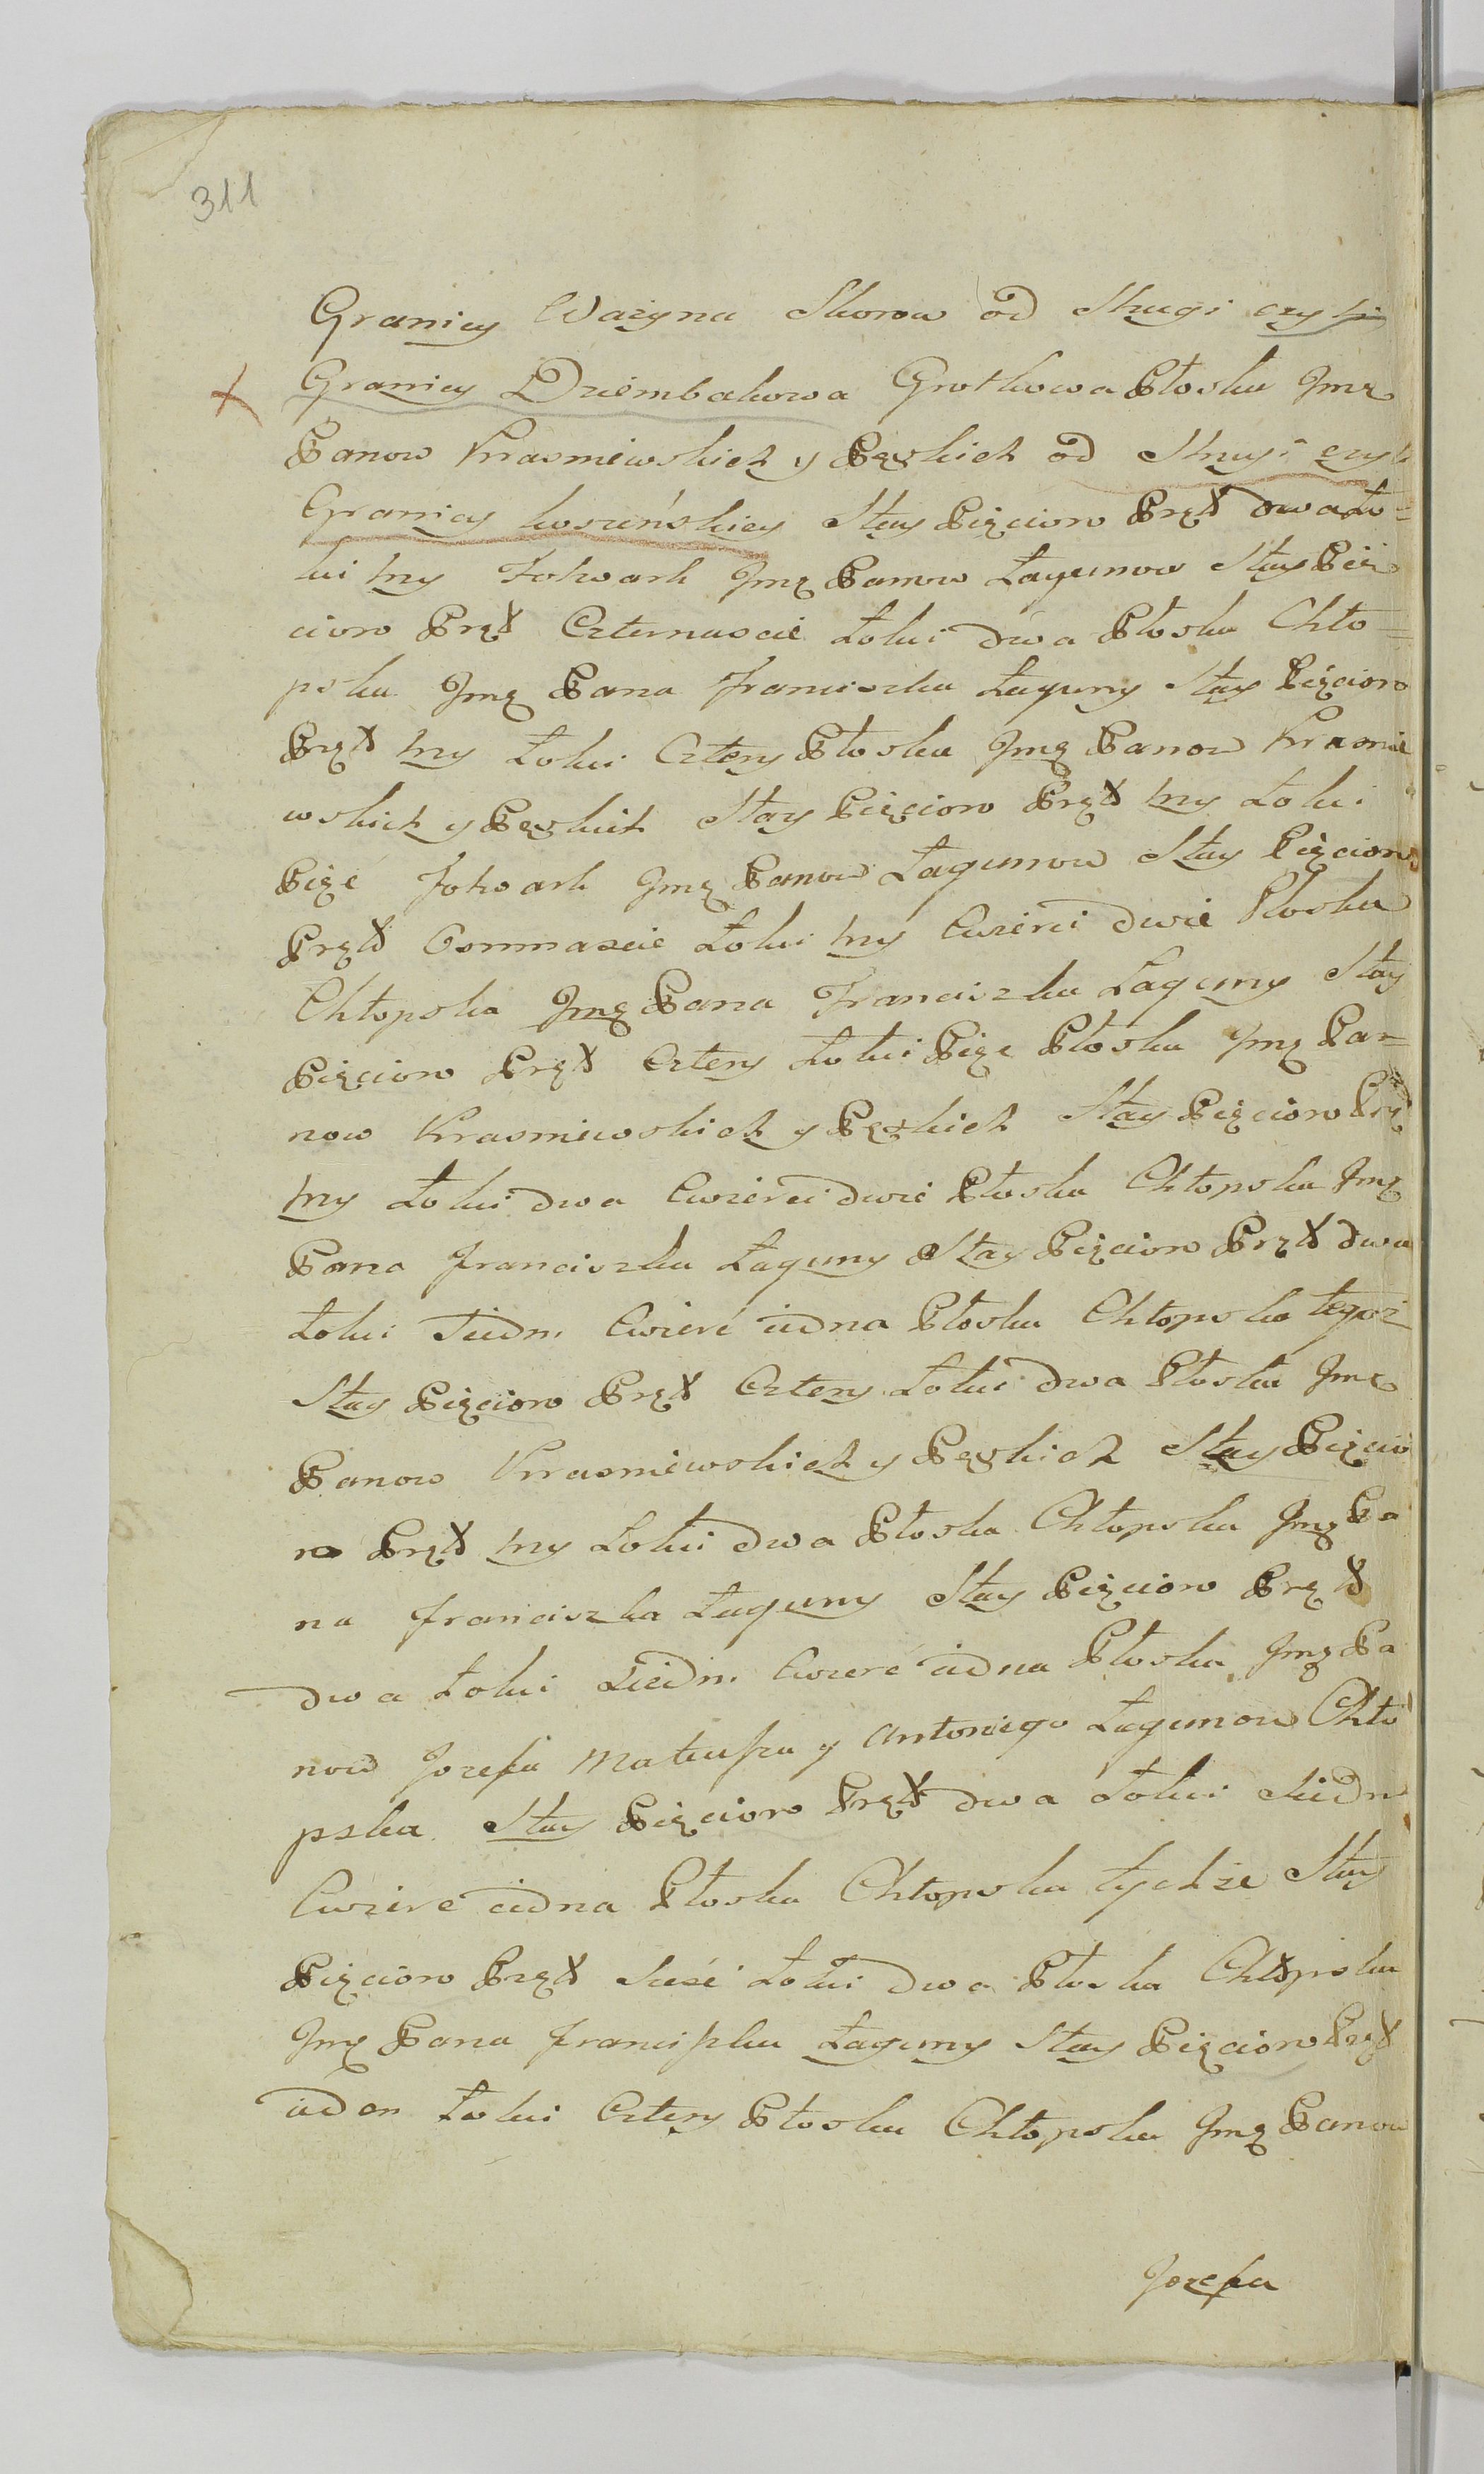 311
Granicy Wazyna Skorow od Strugi czyli
Granicy Dziembakowa Grotkowa Płoska Jmę
Panow Krasniewskich y Bęskich od Strugi czyli
Granicy kosinskiey Stay Pięcioro Pręt dwa Ło=
kci trzy Folwark Jmę Panow Łagunow Stay Pię
cioro Pręt Czternascie Łokci dwa Płoska Chło=
pska Jmę Pana Franciszka Łaguny Stay Pięcioro
Pręt trzy Łokci Cztery Płoska Jmę Panow Krasnie
wskich y Bęskich Stay Pięcioro Pręt trzy Łokci
Pięć Folwark Jmę Panow Łagunow Stay Pięcioro
Pręt Osmnascie Łokci trzy Cwierci dwie Płoska
Chłopska Jmę Pana Franciszka Łaguny Stay
Pięcioro Pręt Cztery Łokci Pięc Płoska Jmę Pa=
now Krasniewskich y Bęskich Stay Pięcioro Pręt
trzy Łokci dwa Cwierci dwie Płoska Chłopska Jmę
Pana Franciszka Łaguny Stay Pięcioro Pręt dwa
Łokci Siedm Cwierć iedna Płoska Chłopska tegoż
Stay Pięcioro Pręt Cztery Łokci dwa Płoska Jmę
Panow Krasniewskich y Bęskich Stay Pięcio
ro Pręt trzy Łokci dwa Płoska Chłopska Jmę Pa
na Franciszka Łaguny Stay Pięcioro Pręt
dwa Łokci Siedm Cwierć iedna Płoska Jmę Pa
now Jozefa Mateusza y Antoniego Łagunow Chło
pska Stay Pięcioro Pręt dwa Łokci Siedm
Cwierć iedna Płoska Chłopska tychże Stay
Pięcioro Pręt Sześć Łokci dwa Płoska Chłopska
Jmę Pana Franciszka Łaguny Stay Pięcioro Pręt
ieden Łokci Cztery Płoska Chłopska Jmę Panow
Jozefa